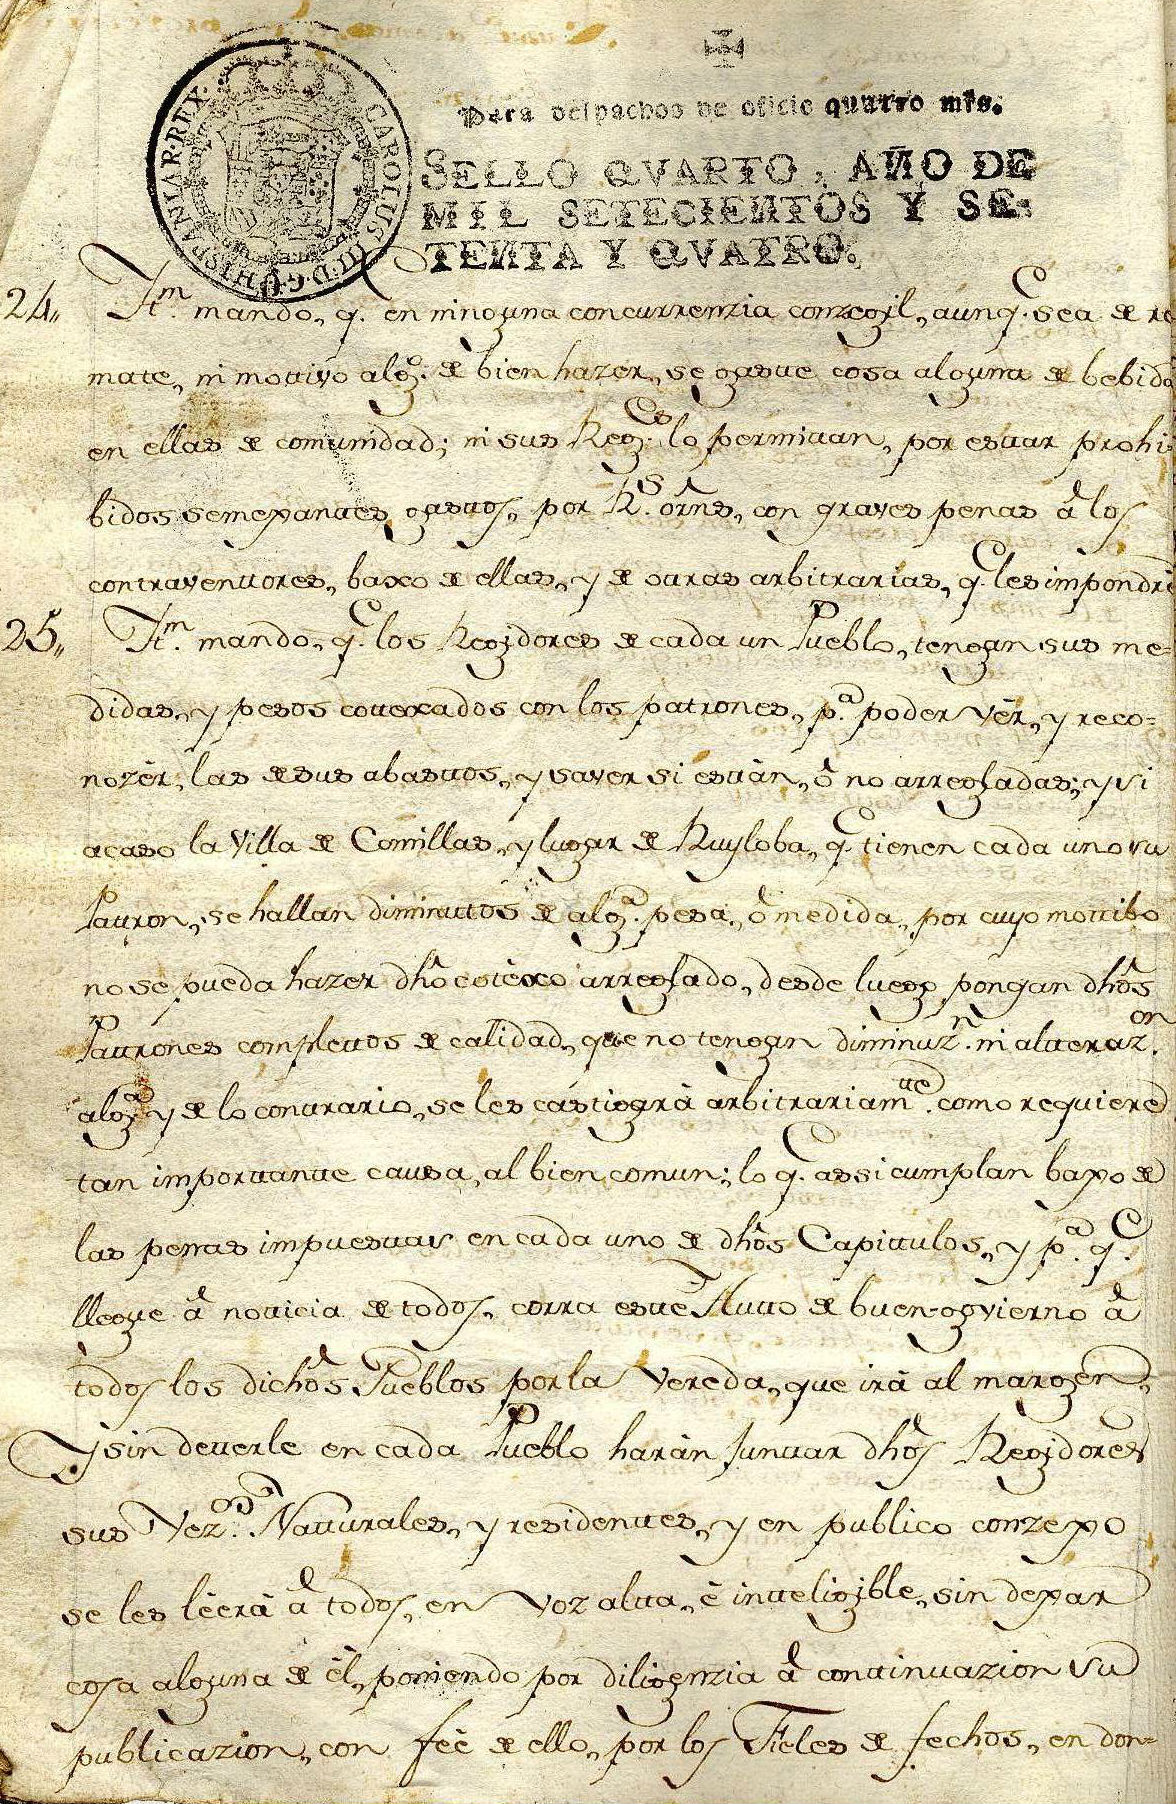 CAROLUS III·D·G·HISPANIAR·REX·
Para despachos de oficio quatro mrs.
SELLO QVARTO, AÑO DE
MIL SETECIENTOS Y SE-
TENTA Y QVATRO.
24,, Ittm. mando, q. en ninguna concurrenzia conzegil, aunq.e sea de re
mate, ni mottivo alg.o de bien hazer, se gaste cosa alguna de bebida
en ellas de comunidad; ni sus Reg.es lo permitan, por estar prohi-
bidos semexantes gastos, por R.s orñs, con graves penas â los
contraventores, baxo de ellas, y de otras arbitrarias, q.e les impondrè
25,, Ittm. mando, q.e los Regidores de cada un Pueblo, tengan sus me-
didas, y pesos cotexados con los patrones, p.a poder vèr, y reco=
nozèr, las de sus abastos, y saver si estàn, ô no arregladas; y si
acaso la Villa de Comillas, y lugar de Ruyloba, q.e tienen cada uno su
Patron, se hallan diminuttos de alg.a pesa, ô medida, por cuyo mottibo
no se pueda hazer dho cotèxo arreglado, desde luego pongan dhôs
Patrones complettos de calidad, que no tengan diminuz.n ni alteraz.on
alg.a y de lo contrario, se les castigarà arbitrariam.te como requiere
tan importante causa, al bien comun; lo q.e assi cumplan baxo de
las penas impuestas en cada uno de dhôs Capittulos, y p.a q.e
llegue â noticia de todos, corra este Autto de buen govierno â
todos los dichôs Pueblos por la Vereda, que irà al margen,
y sin deterle en cada Pueblo haràn Juntar dhôs Regidores
sus Vez.os Natturales, y residentes, y en publico conzexo
se les lèerà â todos, en voz alta, è inteligible, sin dexar
cosa alguna de èl, poniendo por diligenzia â continuazion su
publicazion, con feè de ello, por los Fieles de fechos, en don=